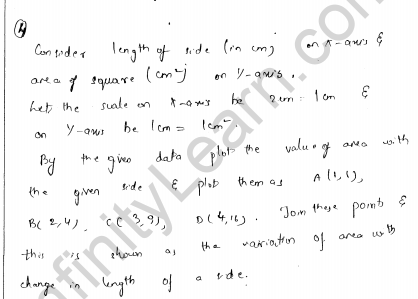 4
Consider length of side (in cm) on x-axis &
area of square (cm²) on Y-axis.
Let, the scale on x-axis be 2cm = 1cm &
on Y-axis be 1cm = 1cm²
By the given data plot the value of area with
the given side & plot them as A(1,1),
B(2,4), C(3,9), D(4,16). Join these points &
this is shown as the variation of area with
change in length of a side.
infinityLearn.com